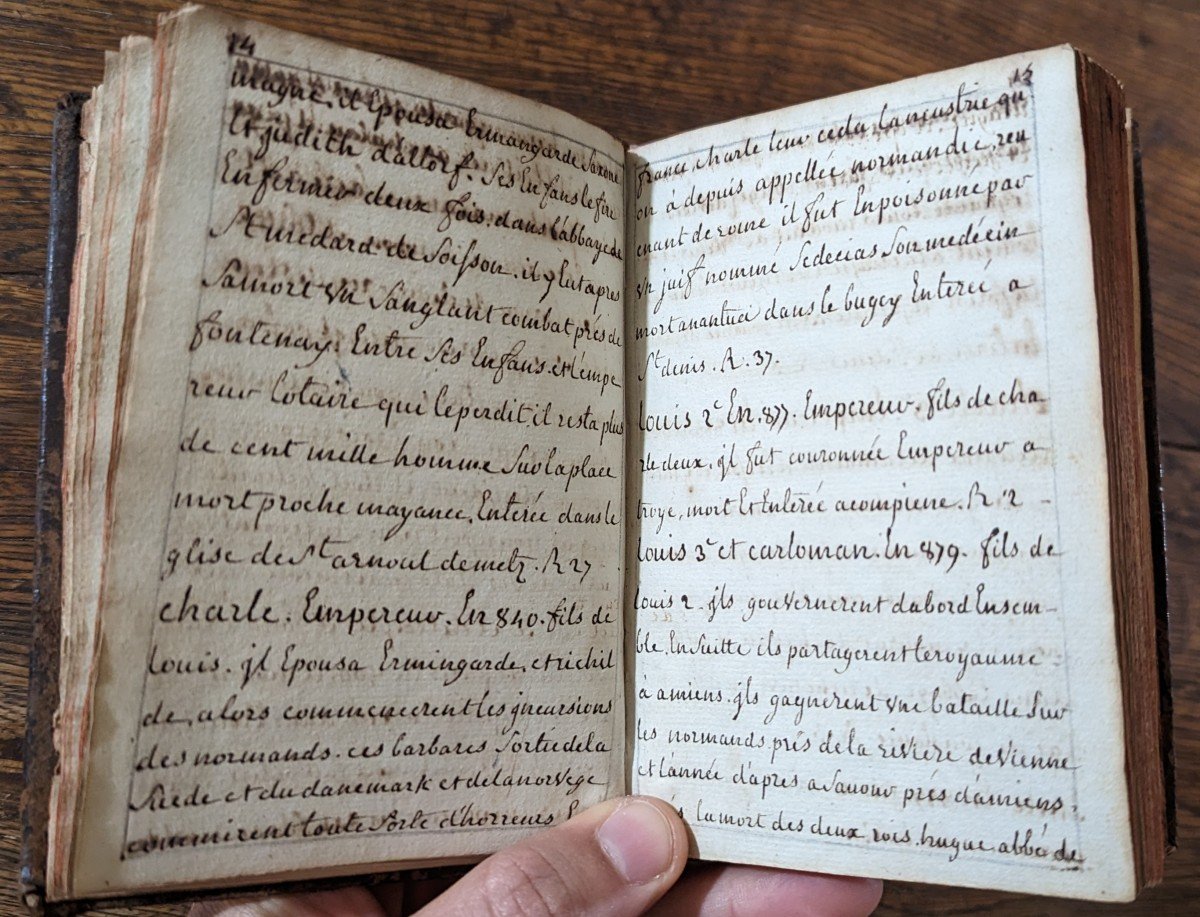 14
magne. il Epousa Ermangarde Saxone
Et judith dallorf. Ses Enfans le fire
Enfermer deux fois. dans l'abbaye de
St medard de Soisson. il y Eut apres
Sa mort Vn Sanglant combat prés de
fontenay. Entre Ses Enfans. et l'empe
reur Lotaire qui le perdit, il resta plus
de cent mille homme Sur la place
mort proche mayance. Enterée dans le
glise de St arnoul de metz. R 27
charle. Empereur. En 840. fils de
louis. jl Epousa Ermingarde, et richil
de, alors commencerent les jncursions
des normands. ces barbares Sortie de la
Suede et du danemark et de la norvege
commirent toute Sorte d'horreurs
15
france, charle leur ceda la neustrie qu
on à depuis appellée normandie, reu
enant de rome il fut Enpoisonné par
vn juif nommé Sedecias Son medecin
mort a nantuci dans le bugey Enterée a
St denis. R. 37.
louis 2e En. 877. Empereur. fils de cha
rle deux. jl fut couronnée Empereur a
troye, mort Et Enterée a compiene. R 2
louis 3e et carloman. En 879. fils de
louis 2. jls gouvernerent dabord Ensem-
ble. En Suitte ils partagerent le royaume
à amiens. jls gagnerent vne bataille Sur
les normands prés de la riviere de Vienne
et l'année d'apres a Savour prés d'amiens.
la mort des deux rois. hugue abbé de